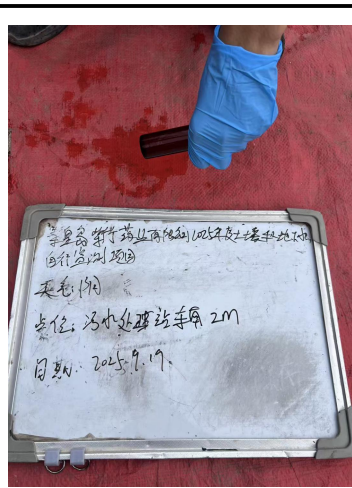 秦皇岛紫竹药业有限公司2025年度土壤和地下水
自行监测项目
点位：污水处理站东南 2m
日期：2025.9.19.